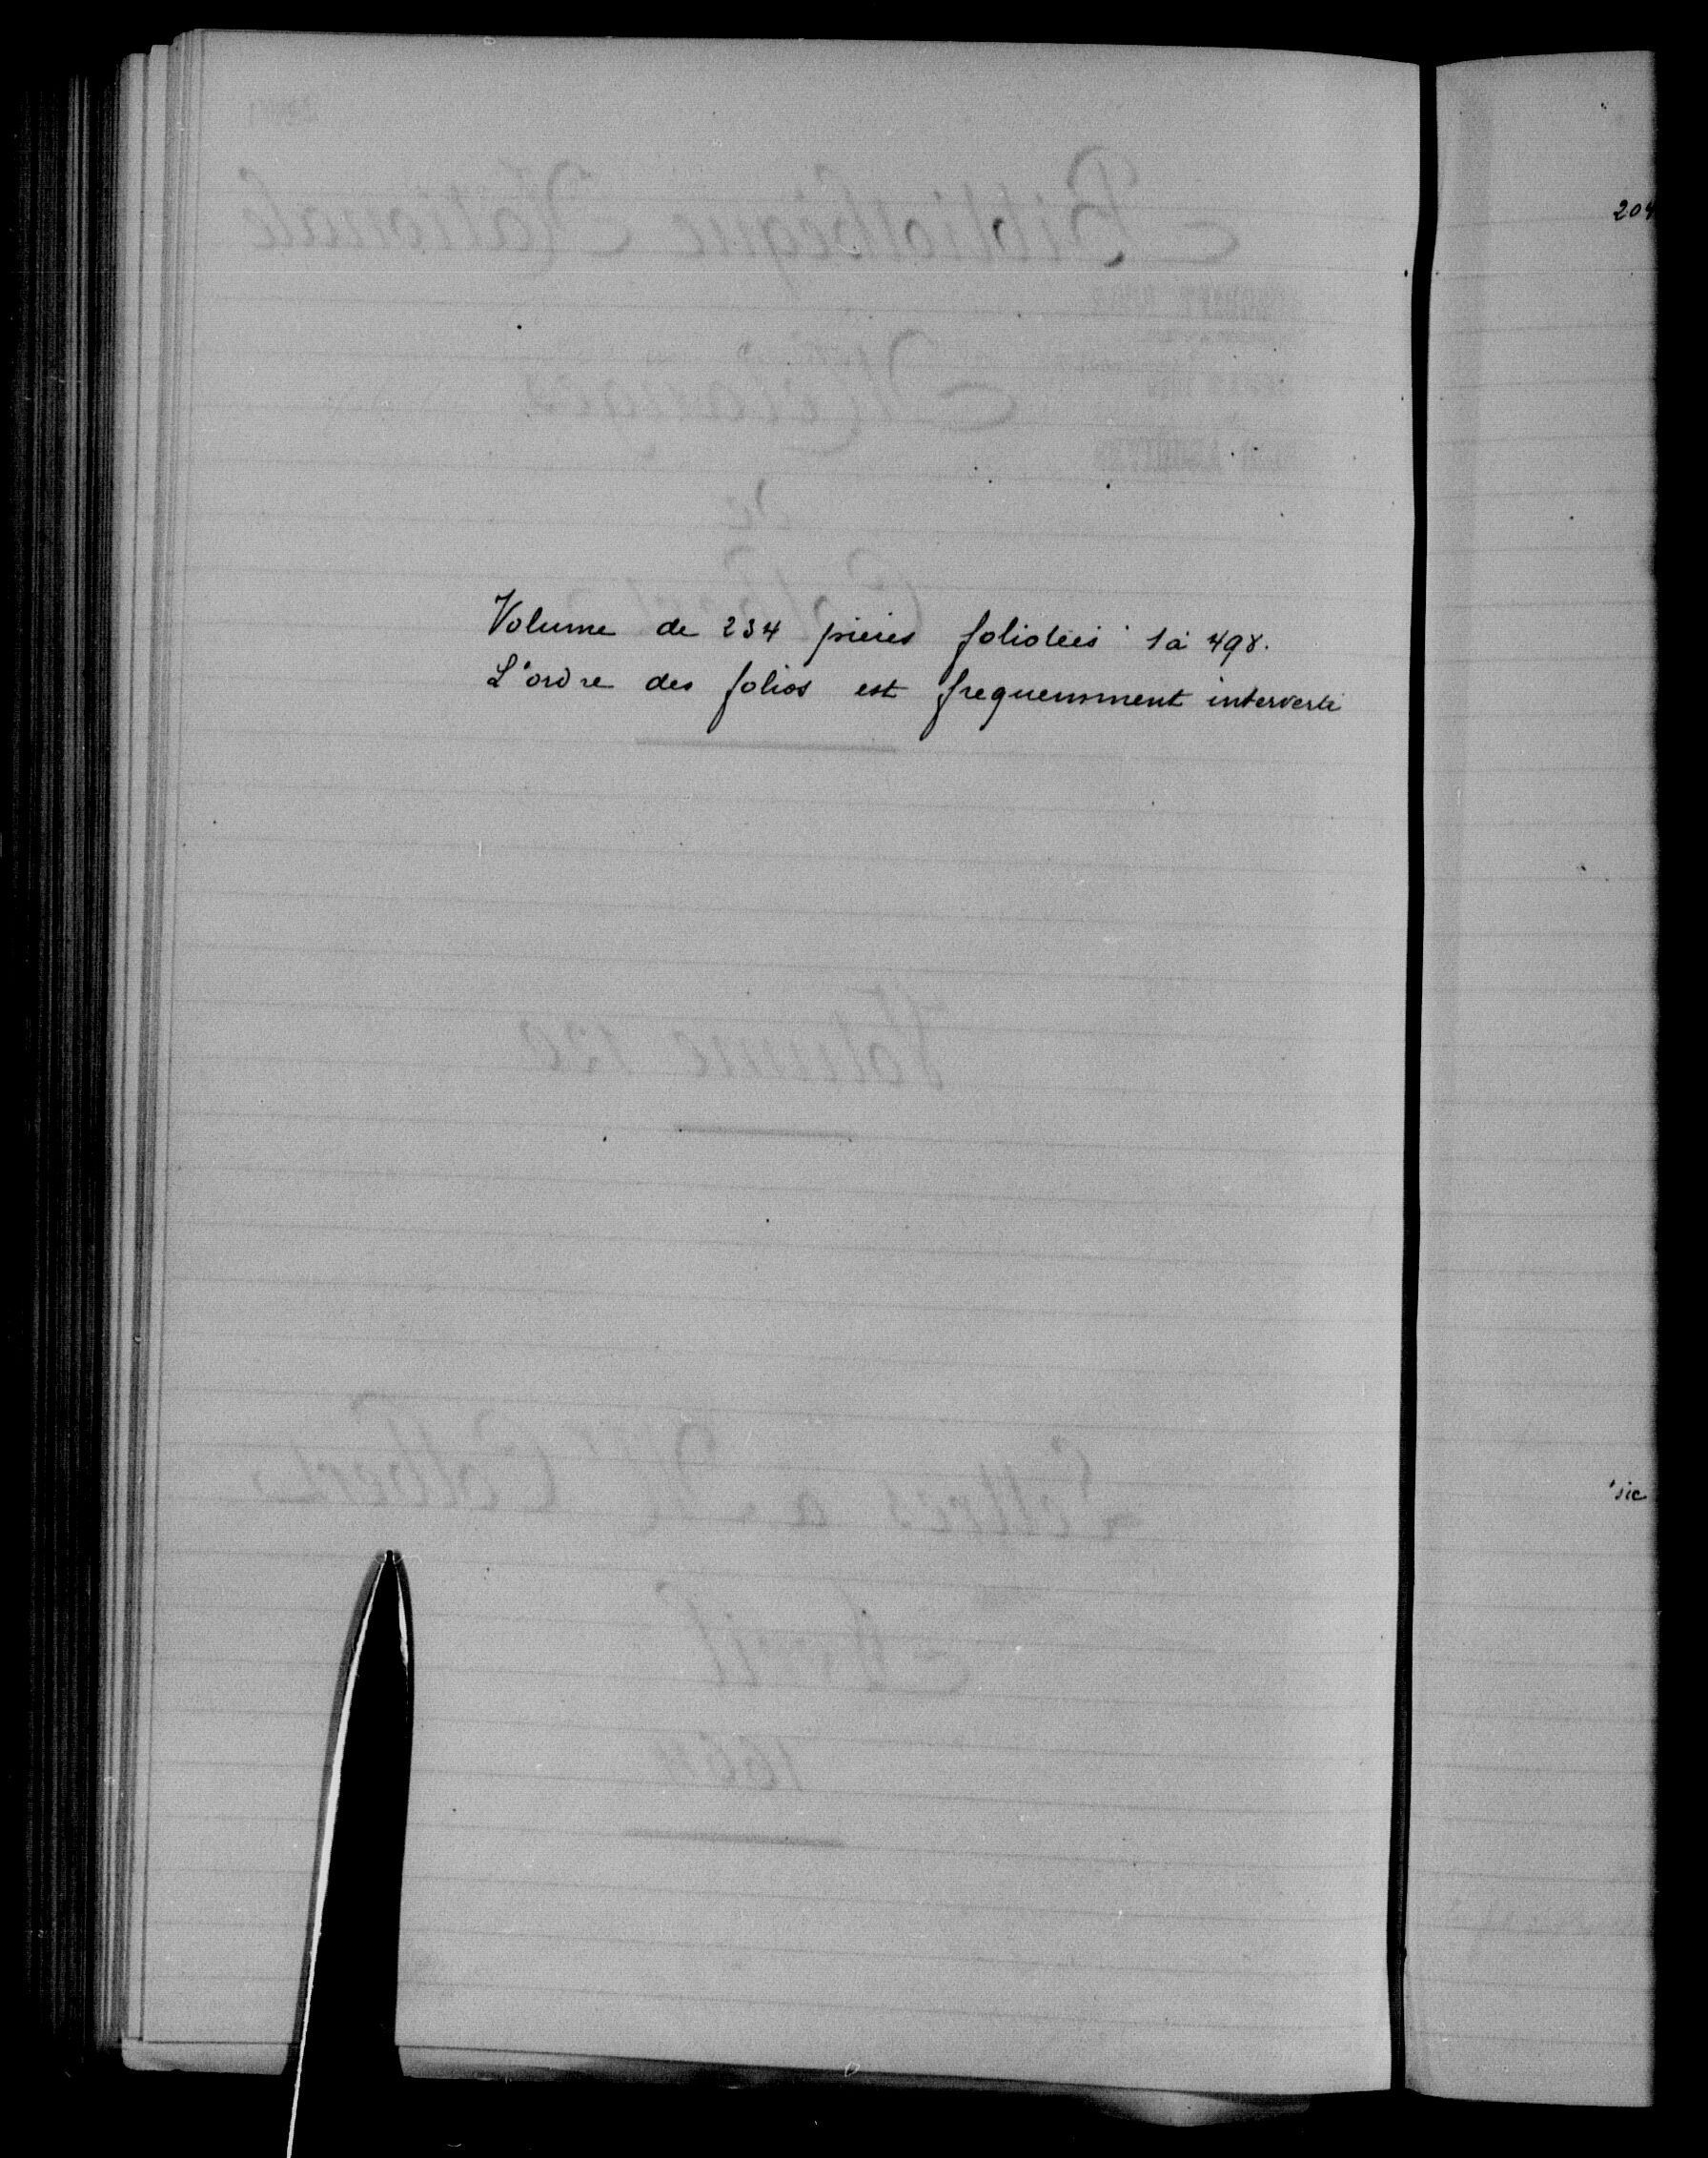 Volume de 234 pièces foliotées 1 à 498.
L'ordre des folios est frequemment interverti
204
sic